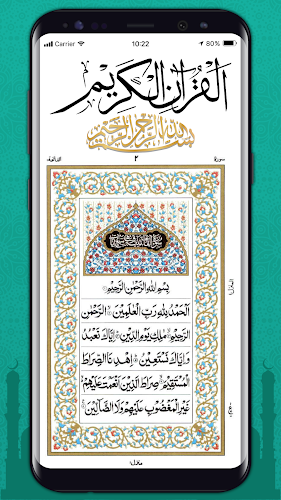 Carrier 10:22 80%
القرآن الكريم
بسم الله الرحمن الرحيم
سورة ٢ الفاتحة
بِسْمِ اللهِ الرَّحْمٰنِ الرَّحِيْمِ
اَلْحَمْدُ لِلّٰهِ رَبِّ الْعٰلَمِيْنَ الرَّحْمٰنِ
الرَّحِيْمِ مٰلِكِ يَوْمِ الدِّيْنِ اِيَّاكَ نَعْبُدُ
وَاِيَّاكَ نَسْتَعِيْنُ اِهْدِنَا الصِّرَاطَ
الْمُسْتَقِيْمَ صِرَاطَ الَّذِيْنَ اَنْعَمْتَ عَلَيْهِمْ
غَيْرِ الْمَغْضُوْبِ عَلَيْهِمْ وَلَا الضَّآلِّيْنَ